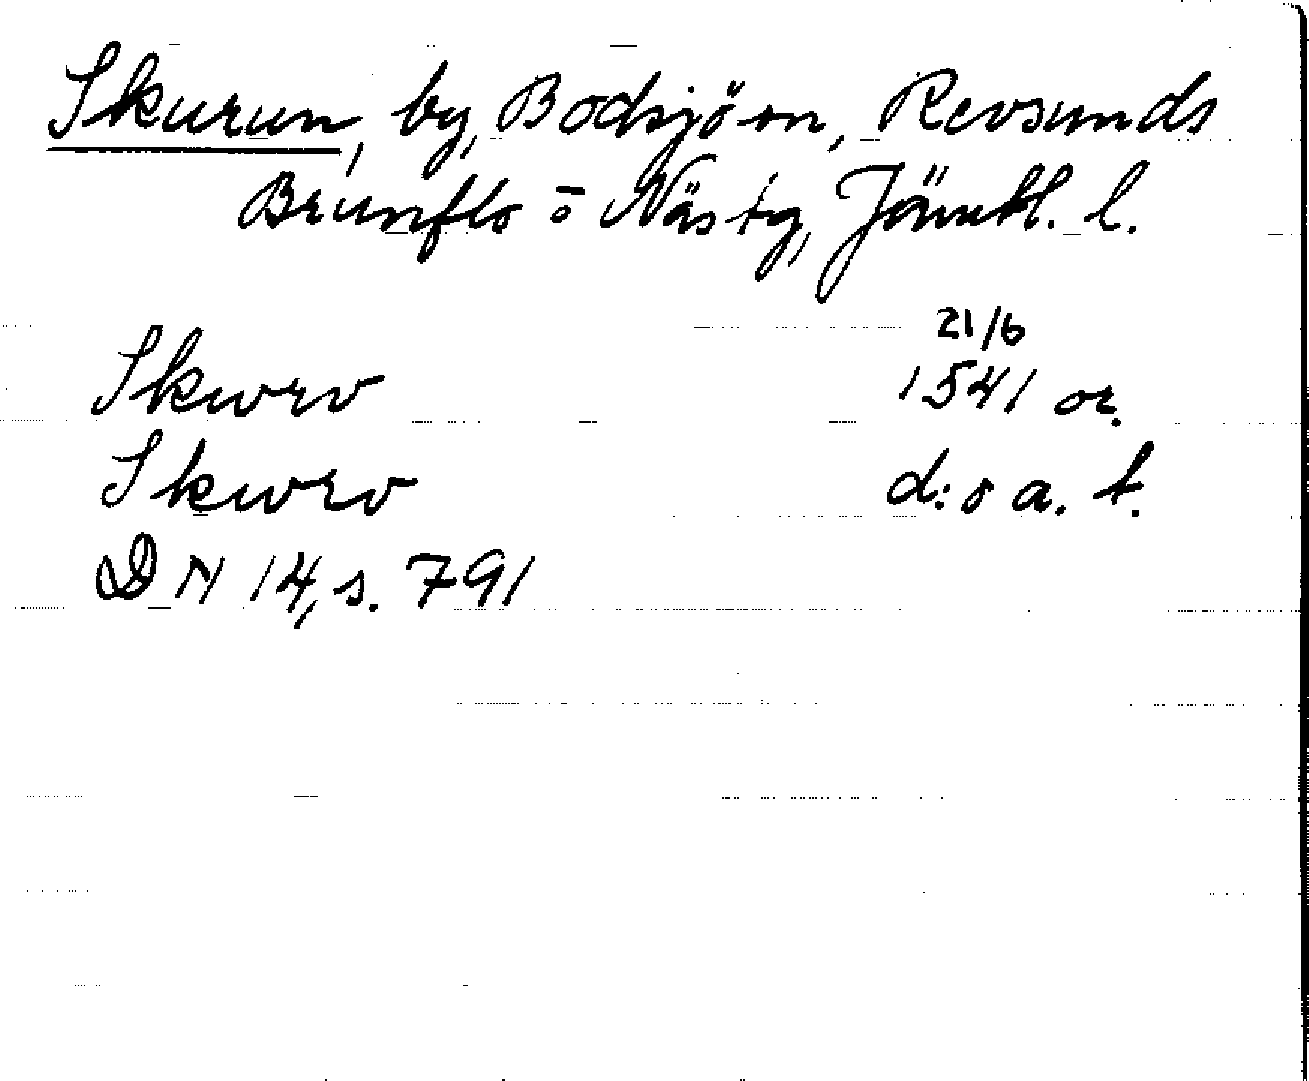 Skurun, by, Bodsjö sn, Revsunds
Brunflo o Näs tg, Jämtl. l.
21/6
Skwrv 1541 or.
Skwrv d:o a. t.
DN 14, s. 791